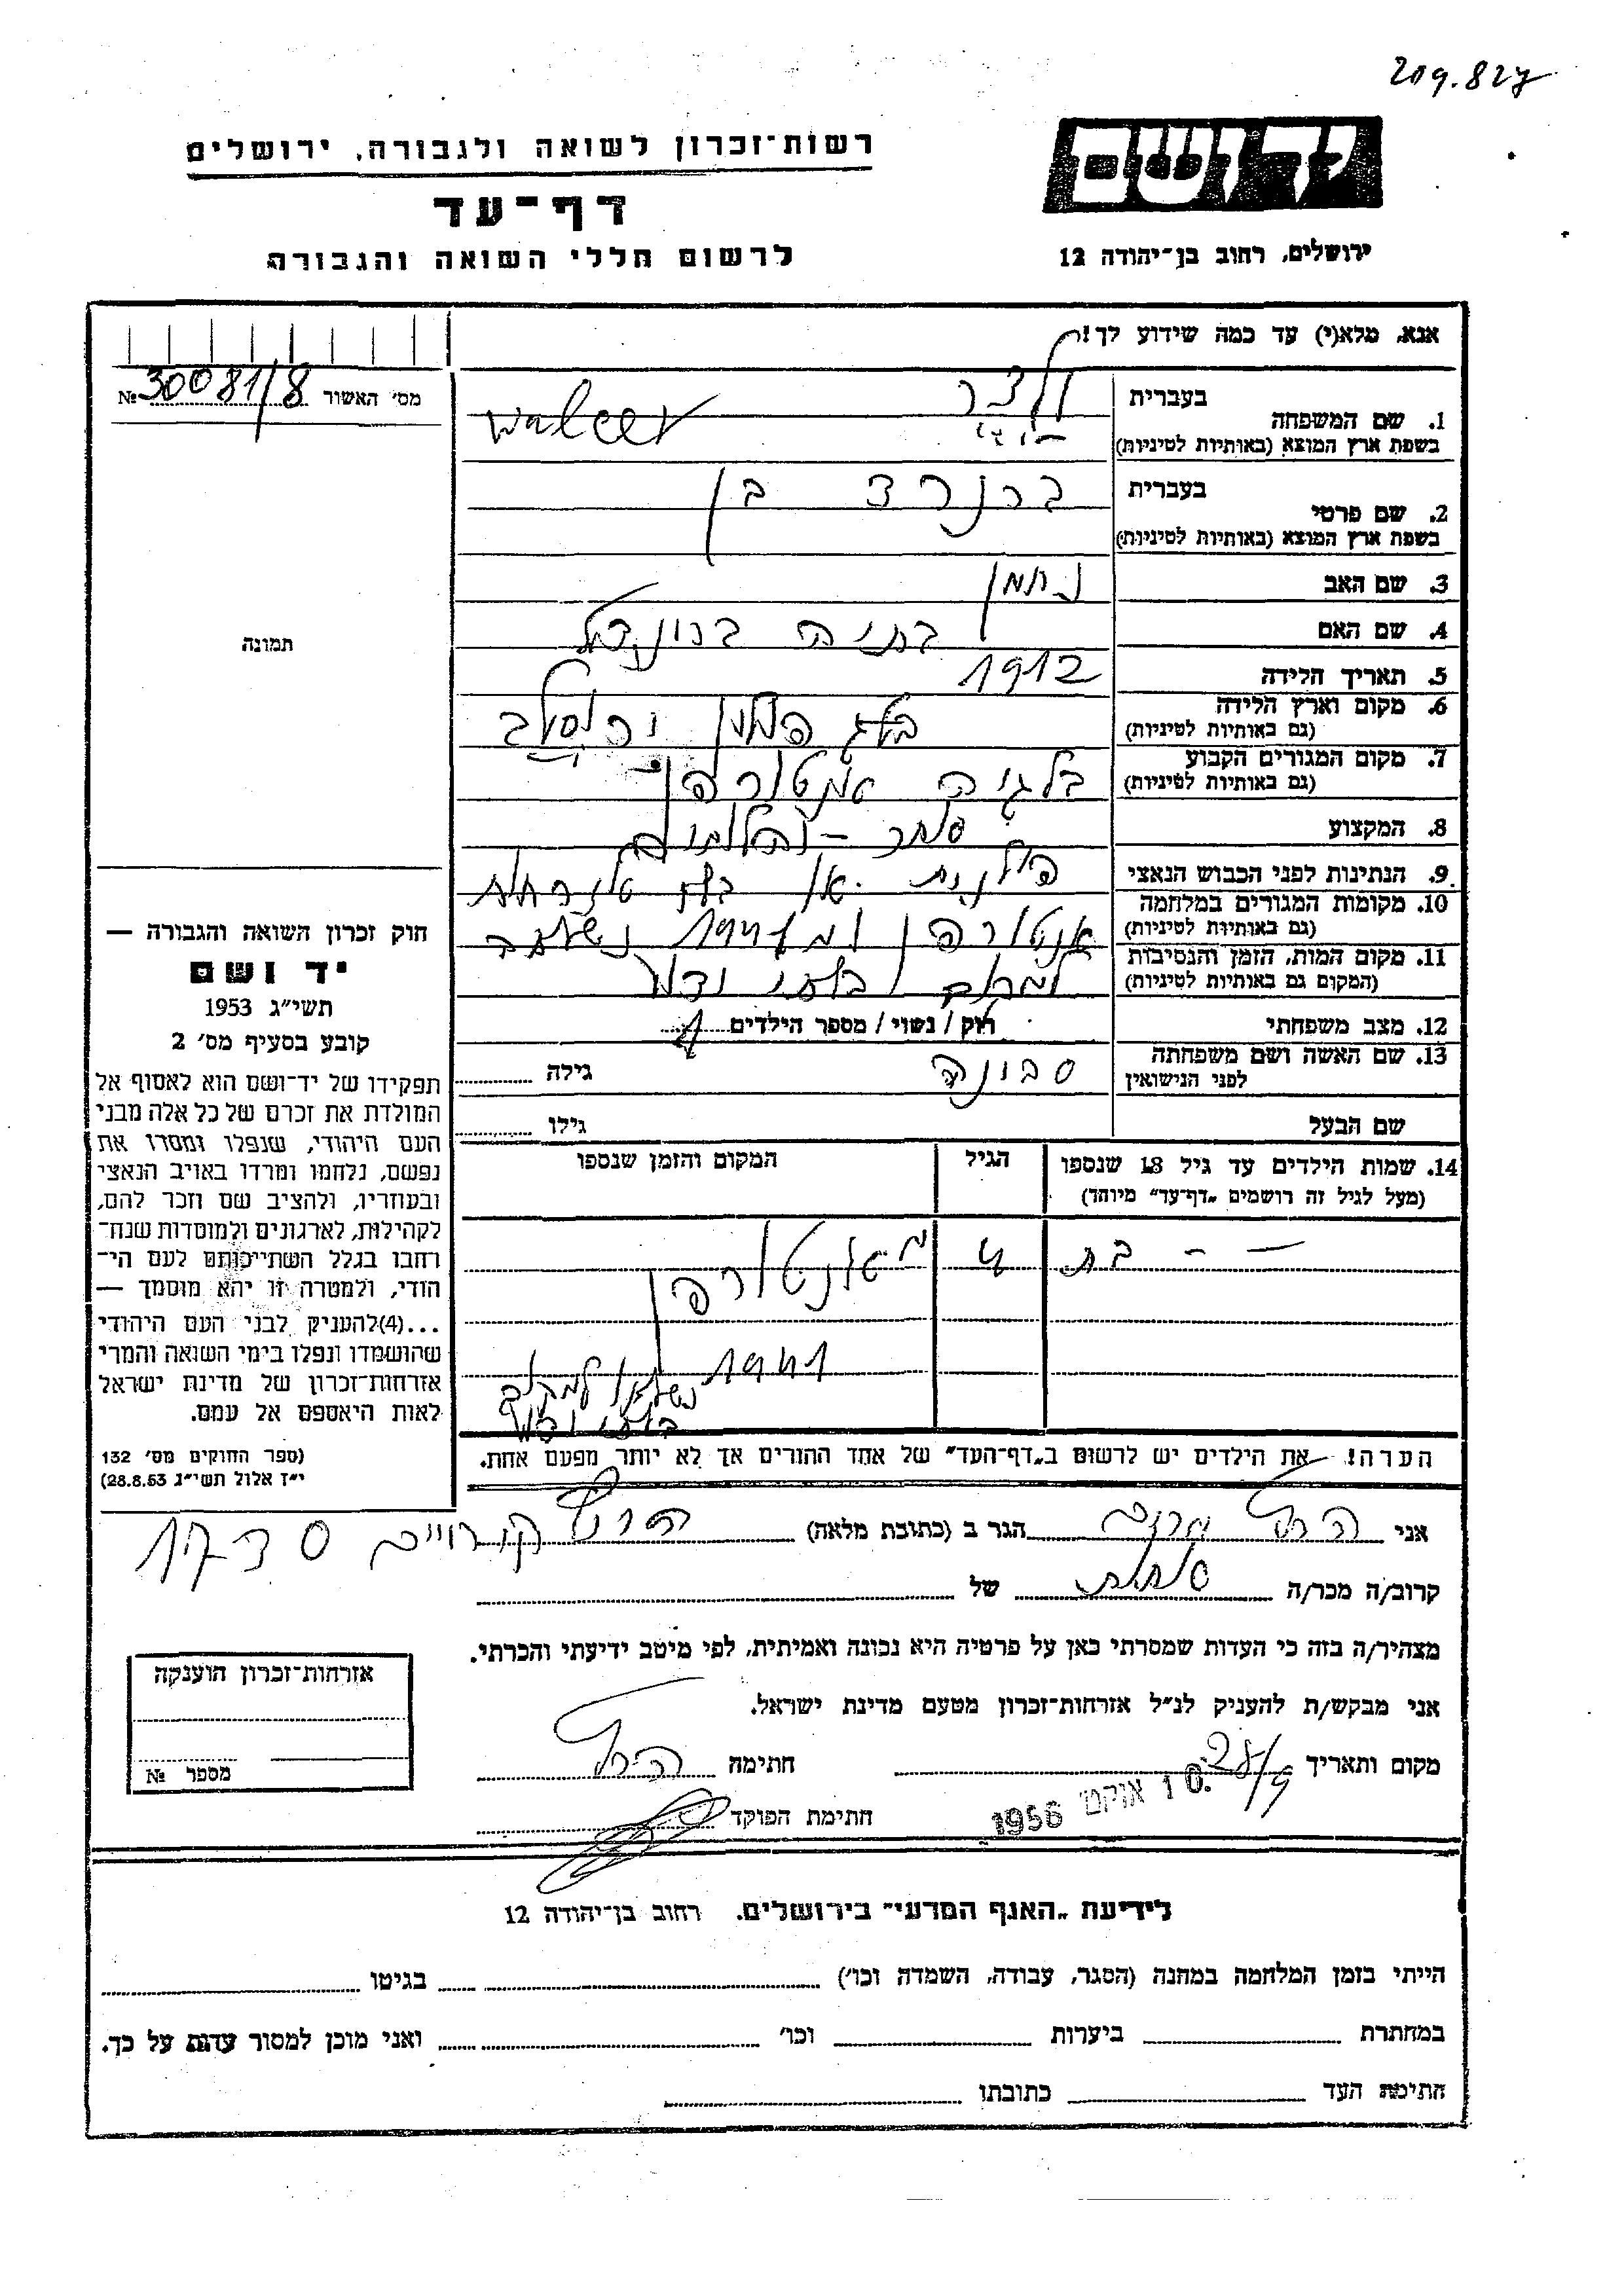 209.827
יד ושם
רשות־זכרון לשואה ולגבורה, ירושלים
דף־עד
לרשום חללי השואה והגבורה
ירושלים, רחוב בן־יהודה 12
אנא, מלא(י) עד כמה שידוע לך!
מס׳ האשור 30081/8 №
1. שם המשפחה
בעברית ולצר
בשפת ארץ המוצא (באותיות לטיניות)
2. שם פרטי
בעברית ברנרד בן
בשפת ארץ המוצא (באותיות לטיניות)
3. שם האב נחמן
4. שם האם בתיה
5. תאריך הלידה 1912
6. מקום וארץ הלידה
(גם באותיות לטיניות)
7. מקום המגורים הקבוע בלגיה אנטורפן
(גם באותיות לטיניות)
8. המקצוע סוחר - יהלומים
9. הנתינות לפני הכבוש הנאצי
10. מקומות המגורים במלחמה אנטורפן
(גם באותיות לטיניות)
11. מקום המות, הזמן והנסיבות למקום בלתי ידוע
(המקום גם באותיות לטיניות)
12. מצב משפחתי רוק / נשוי / מספר הילדים 1
13. שם האשה ושם משפחתה
לפני הנישואין
גילה
שם הבעל גילו
14. שמות הילדים עד גיל 18 שנספו
(מעל לגיל זה רושמים „דף־עד״ מיוחד)
הגיל
המקום והזמן שנספו
- - בת 4 מאנטורפן
1941
למקום
בלתי ידוע
הערה! את הילדים יש לרשום ב„דף־העד״ של אחד ההורים אך לא יותר מפעם אחת.
תמונה
חוק זכרון השואה והגבורה —
יד ושם
תשי״ג 1953
קובע בסעיף מס׳ 2
תפקידו של יד־ושם הוא לאסוף אל
המולדת את זכרם של כל אלה מבני
העם היהודי, שנפלו ומסרו את
נפשם, נלחמו ומרדו באויב הנאצי
ובעוזריו, ולהציב שם וזכר להם,
לקהילות, לארגונים ולמוסדות שנח־
רחבו בגלל השתייכותם לעם הי־
הודי, ולמטרה זו יהא מוסמך —
...(4)להעניק לבני העם היהודי
שהושמדו ונפלו בימי השואה והמרי
אזרחות־זכרון של מדינת ישראל
לאות היאספם אל עמם.
(ספר החוקים מס׳ 132
י״ז אלול תשי״ג 28.8.53)
אני הגר ב (כתובת מלאה)
קרוב/ה מכר/ה של
מצהיר/ה בזה כי העדות שמסרתי כאן על פרטיה היא נכונה ואמיתית, לפי מיטב ידיעתי והכרתי.
אני מבקש/ת להעניק לנ״ל אזרחות־זכרון מטעם מדינת ישראל.
מקום ותאריך 28/9 חתימה
10. אוקט׳ 1956
חתימת הפוקד
אזרחות־זכרון הוענקה
מספר №
לידיעת „האגף המדעי״ בירושלים, רחוב בן־יהודה 12
הייתי בזמן המלחמה במחנה (הסגר, עבודה, השמדה וכו׳) בגיטו
במחתרת ביערות וכו׳ ואני מוכן למסור עדות על כך.
חתימת העד כתובתו